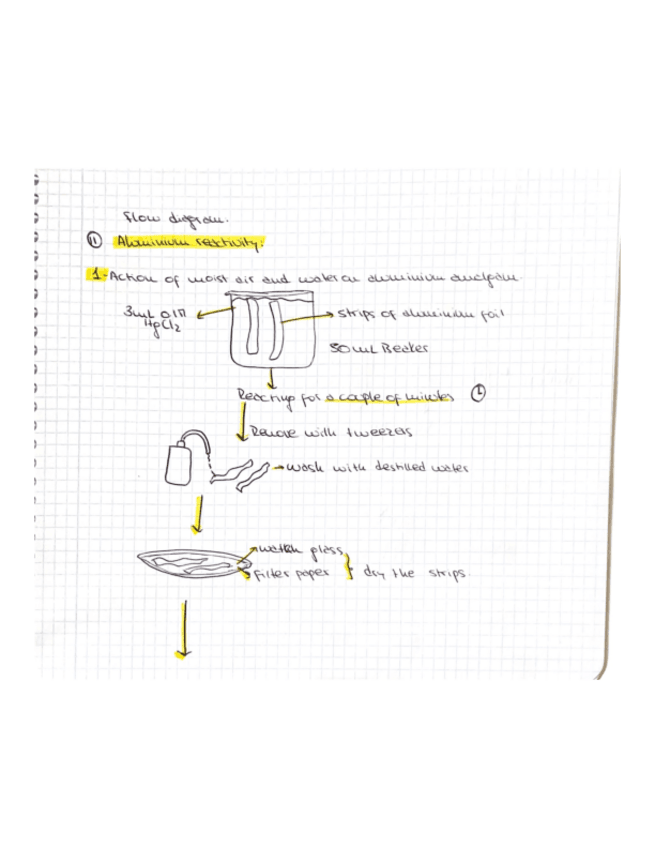 Flow diagram.
11 Aluminium reactivity:
1-Action of moist air and water on aluminium amalgam.
3mL 0'1M
HgCl2
strips of aluminium foil
50mL Beaker
Reacting for a couple of minutes
Remove with tweezers
wash with destilled water
watch glass
filter paper
dry the strips.